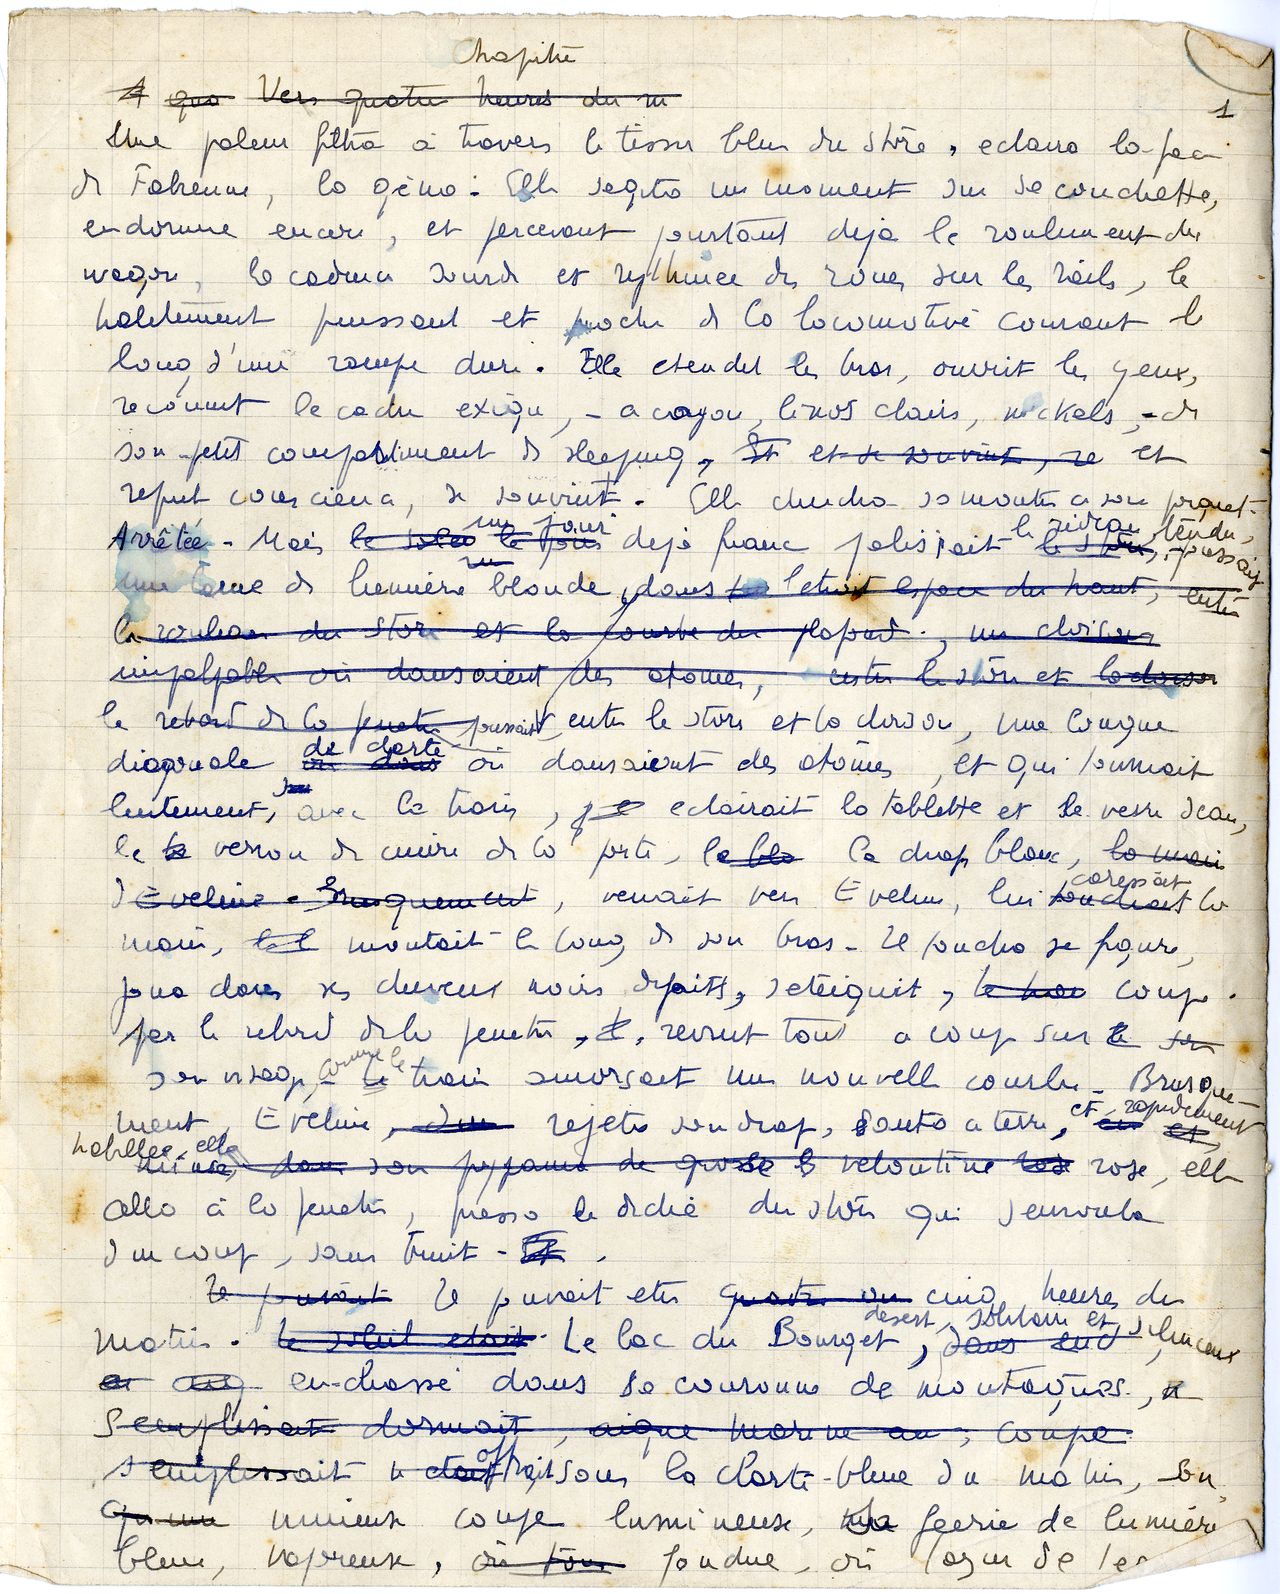 Chapitre
A qua Vers quatre heures du m
1
Une paleur filtra à travers le tissu bleu du store, eclaira la face
de Fabienne, la gêna. Elle s'agita un moment sur sa couchette,
endormie encore, et percevant pourtant deja le roulement du
wagon, la cadence sourde et rythmee des roues sur les rails, le
halètement puissant et proche de la locomotive courant le
long d'une rampe dure. Elle etendit les bras, ouvrit les yeux,
reconnut le cadre exigu, - acajou, linos clairs, nickels, - de
son petit compartiment de sleeping, Et et se souvint, re et
reprit conscience, se souvint. Elle chercha sa montre a son poignet.
Arrêtée. Mais le soleil le jour un jour deja franc palissait le store, le rideau tendu, passait
une lame de lumière blonde, dans l'etroit espace du haut, entre
le rouleau du store et la courbe du plafond, une cloison
impalpable où dansaient des atomes, entre le store et la cloison
le rebord de la fenetre poussait, entre le store et la cloison, une longue
diagonale où dans de clarté où dansaient des atomes, et qui tournait
lentement, avec le train, eclairait la tablette et le verre d'eau,
le verrou de cuivre de la porte, le bla le drap blanc, la main
d'Eveline. Brusquement, venait vers Eveline, lui touchait caressait la
main, montait le long de son bras. Il toucha sa figure,
joua dans ses cheveux noirs defaits, s'eteignit, coupé
par le rebord de la fenetre, revint tout a coup sur
son visage, comme le train amorsait une nouvelle courbe. Brusque-
ment, Eveline, rejeta son drap, sauta a terre, et rapidement
habillee, elle
mince, dans son pyjama de grosse veloutine rose, elle
alla à la fenetre, pressa le declic du store qui s'enroula
d'un coup, sans bruit. Et
Il pouvait Il pouvait etre quatre ou cinq heures du
matin. Le soleil etait Le lac du Bourget, desert, solitaire et silencieux,
enchassé dans sa couronne de montagnes,
s'emplissait dormait, aigue marine au, coupe
s'emplissait offrait sous la clarte bleue du matin, son
Qu'une mineuse coupe lumineuse, feerie de lumière
bleue, vaporeuse, où tous fondue, où l'azur de